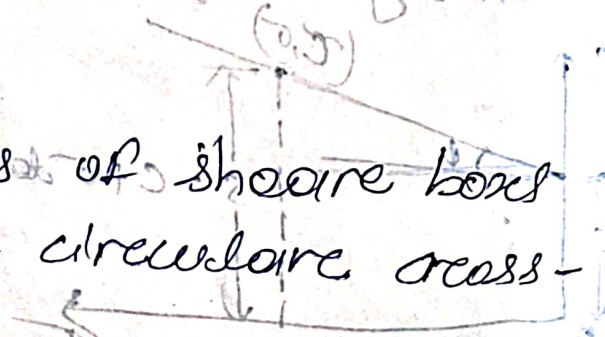 (σ, τ)
s of sheare boxes
circulare cross-